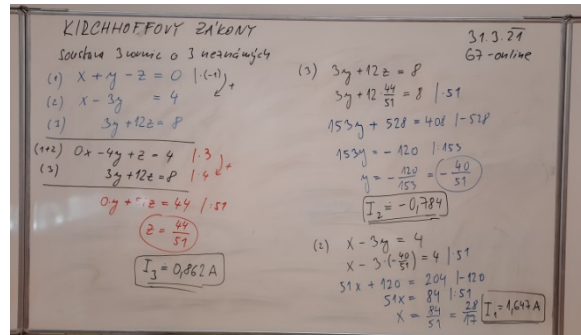 KIRCHHOFFOVY ZÁKONY
31.3.21
G7-online
Soustava 3 rovnic o 3 neznámých
(1) x + y - z = 0 |·(-1) +
(2) x - 3y = 4
(3) 3y + 12z = 8
(1+2) 0x - 4y + z = 4 |·3 +
(3) 3y + 12z = 8 |·4
z = 44/51
I₃ = 0,862 A
(3) 3y + 12z = 8
3y + 12·44/51 = 8 |·51
153y + 528 = 408 |-528
153y = -120 |:153
y = -120/153 = -40/51
I₂ = -0,784
(2) x - 3y = 4
x - 3·(-40/51) = 4 |·51
51x + 120 = 204 |-120
51x = 84 |:51
x = 84/51 = 28/17
I₁ = 1,647 A